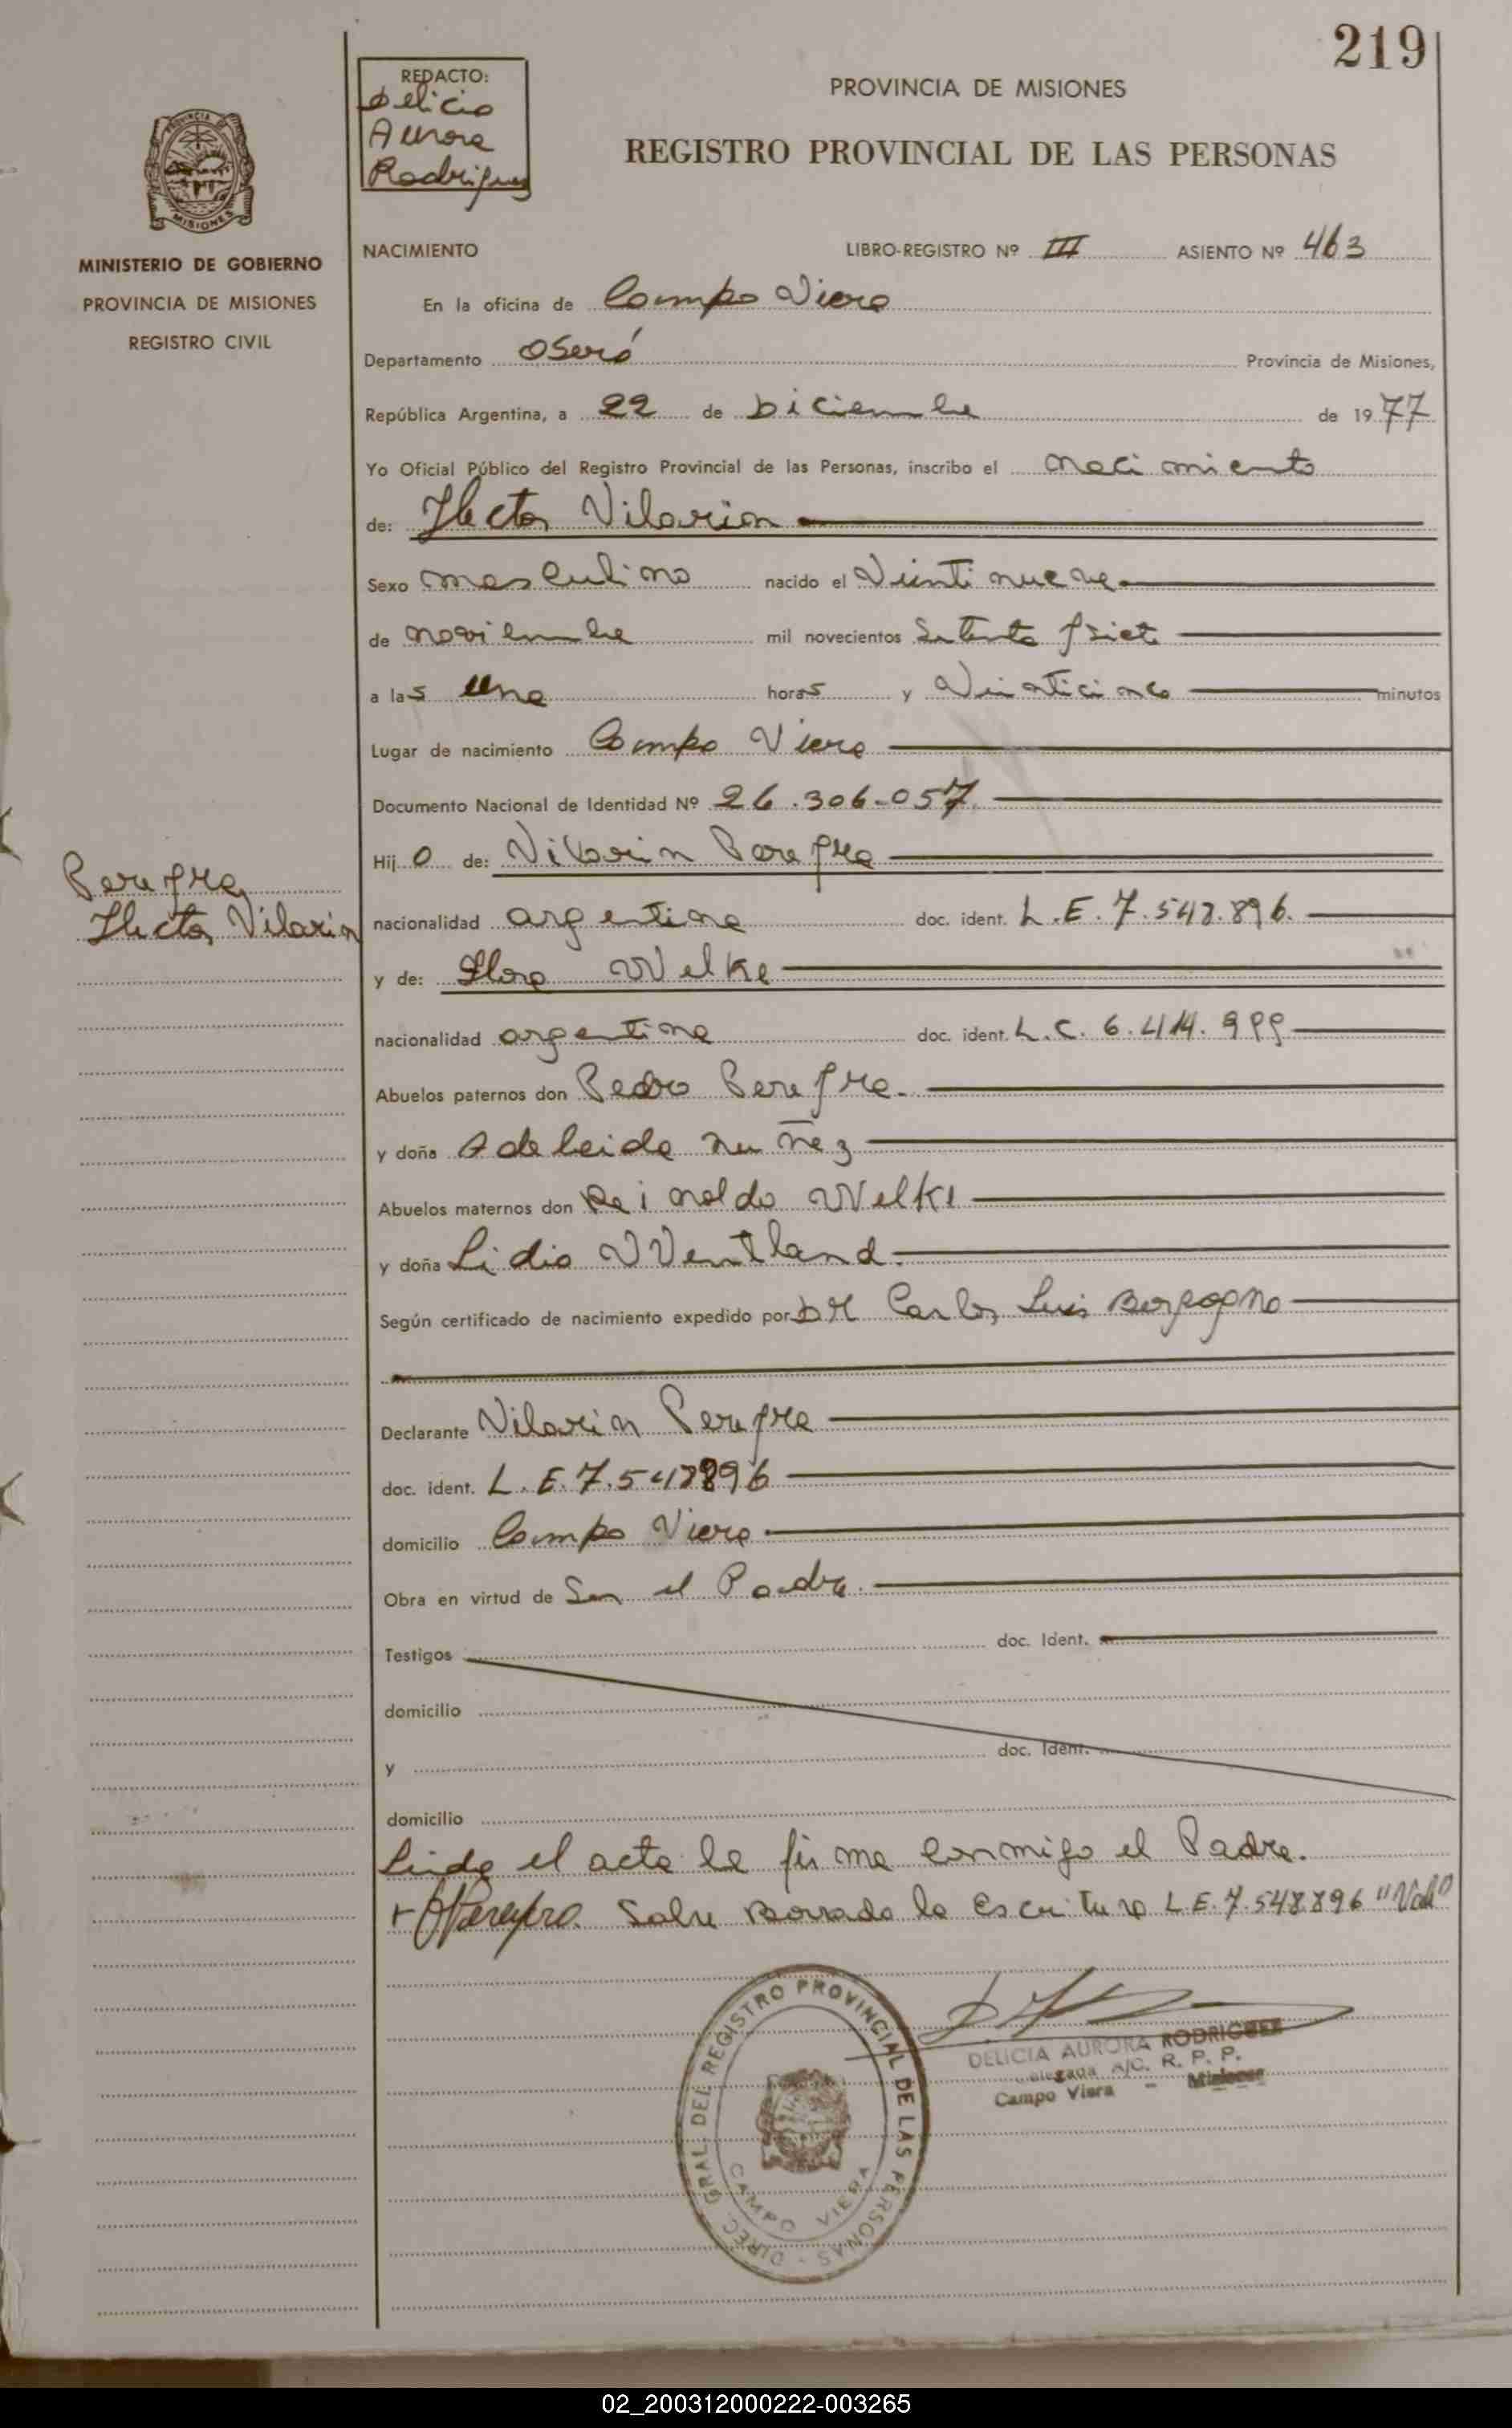 219
REDACTO:
Delicia
Aurora
Rodriguez
PROVINCIA DE MISIONES
REGISTRO PROVINCIAL DE LAS PERSONAS
MISIONES
MINISTERIO DE GOBIERNO
PROVINCIA DE MISIONES
REGISTRO CIVIL
NACIMIENTO LIBRO-REGISTRO Nº III ASIENTO Nº 463
En la oficina de Campo Viera
Departamento Oberá Provincia de Misiones,
República Argentina, a 22 de Diciembre de 1977
Yo Oficial Público del Registro Provincial de las Personas, inscribo el nacimiento
de: Hector Vilarin
Sexo masculino nacido el Veintinueve
de noviembre mil novecientos Setenta y siete
a las una horas y Veinticinco minutos
Lugar de nacimiento Campo Viera
Documento Nacional de Identidad Nº 26.306.057
Hijo de: Vilarin Pereyra
Pereyra
Hector Vilarin
nacionalidad argentina doc. ident. L.E. 7.548.896.
y de: Flora Welke
nacionalidad argentina doc. ident. L.C. 6.414.999
Abuelos paternos don Pedro Pereyra.
y doña Adeleida Nuñez
Abuelos maternos don Reinoldo Welke
y doña Lidia Wentland.
Según certificado de nacimiento expedido por DR Carlos Luis Borgogno
Declarante Vilarin Pereyra
doc. ident. L.E. 7.548896
domicilio Campo Viera
Obra en virtud de Ser el Padre.
Testigos doc. Ident.
domicilio
y doc. Ident.
domicilio
Leida el acta la firma conmigo el Padre.
Pereyra. Sobre Borrado la Escritura L.E. 7.548.896 "Vale"
DIREC. GRAL. DEL REGISTRO PROVINCIAL DE LAS PERSONAS -
CAMPO VIERA
DELICIA AURORA RODRIGUEZ
Delegada A/C. R. P. P.
Campo Viera - Misiones
02_200312000222-003265